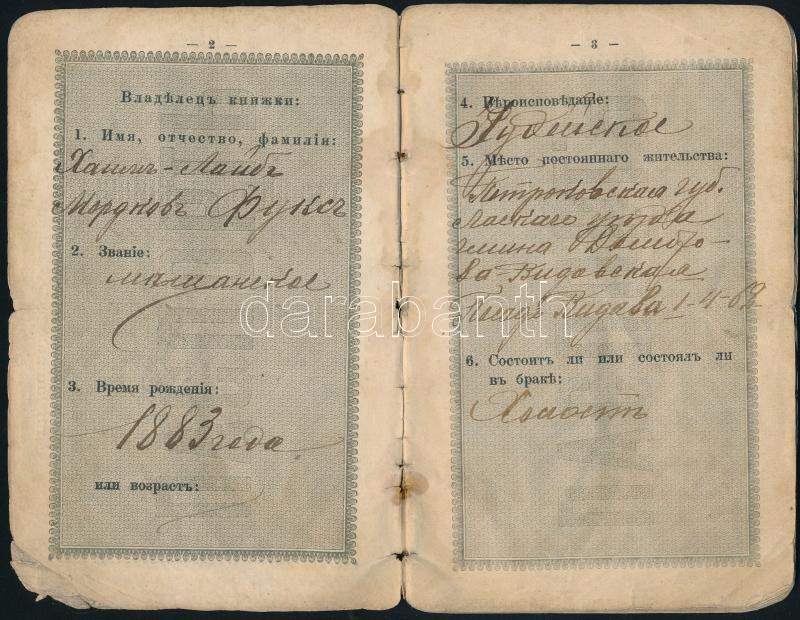 — 2 —
Владѣлецъ книжки:
1. Имя, отчество, фамилія:
Хаимъ-Лайбъ
Мордковъ Фуксъ
2. Званіе:
мѣщанское
3. Время рожденія:
1883 года
или возрастъ:
— 3 —
4. Вѣроисповѣданіе:
Іудейское
5. Мѣсто постояннаго жительства:
Петроковская губ.
Ласкаго уѣзда
гмина Домбро-
ва-Видавская
Видава 1-4-62
6. Состоитъ ли или состоялъ ли
въ бракѣ:
Холостъ
darabanth